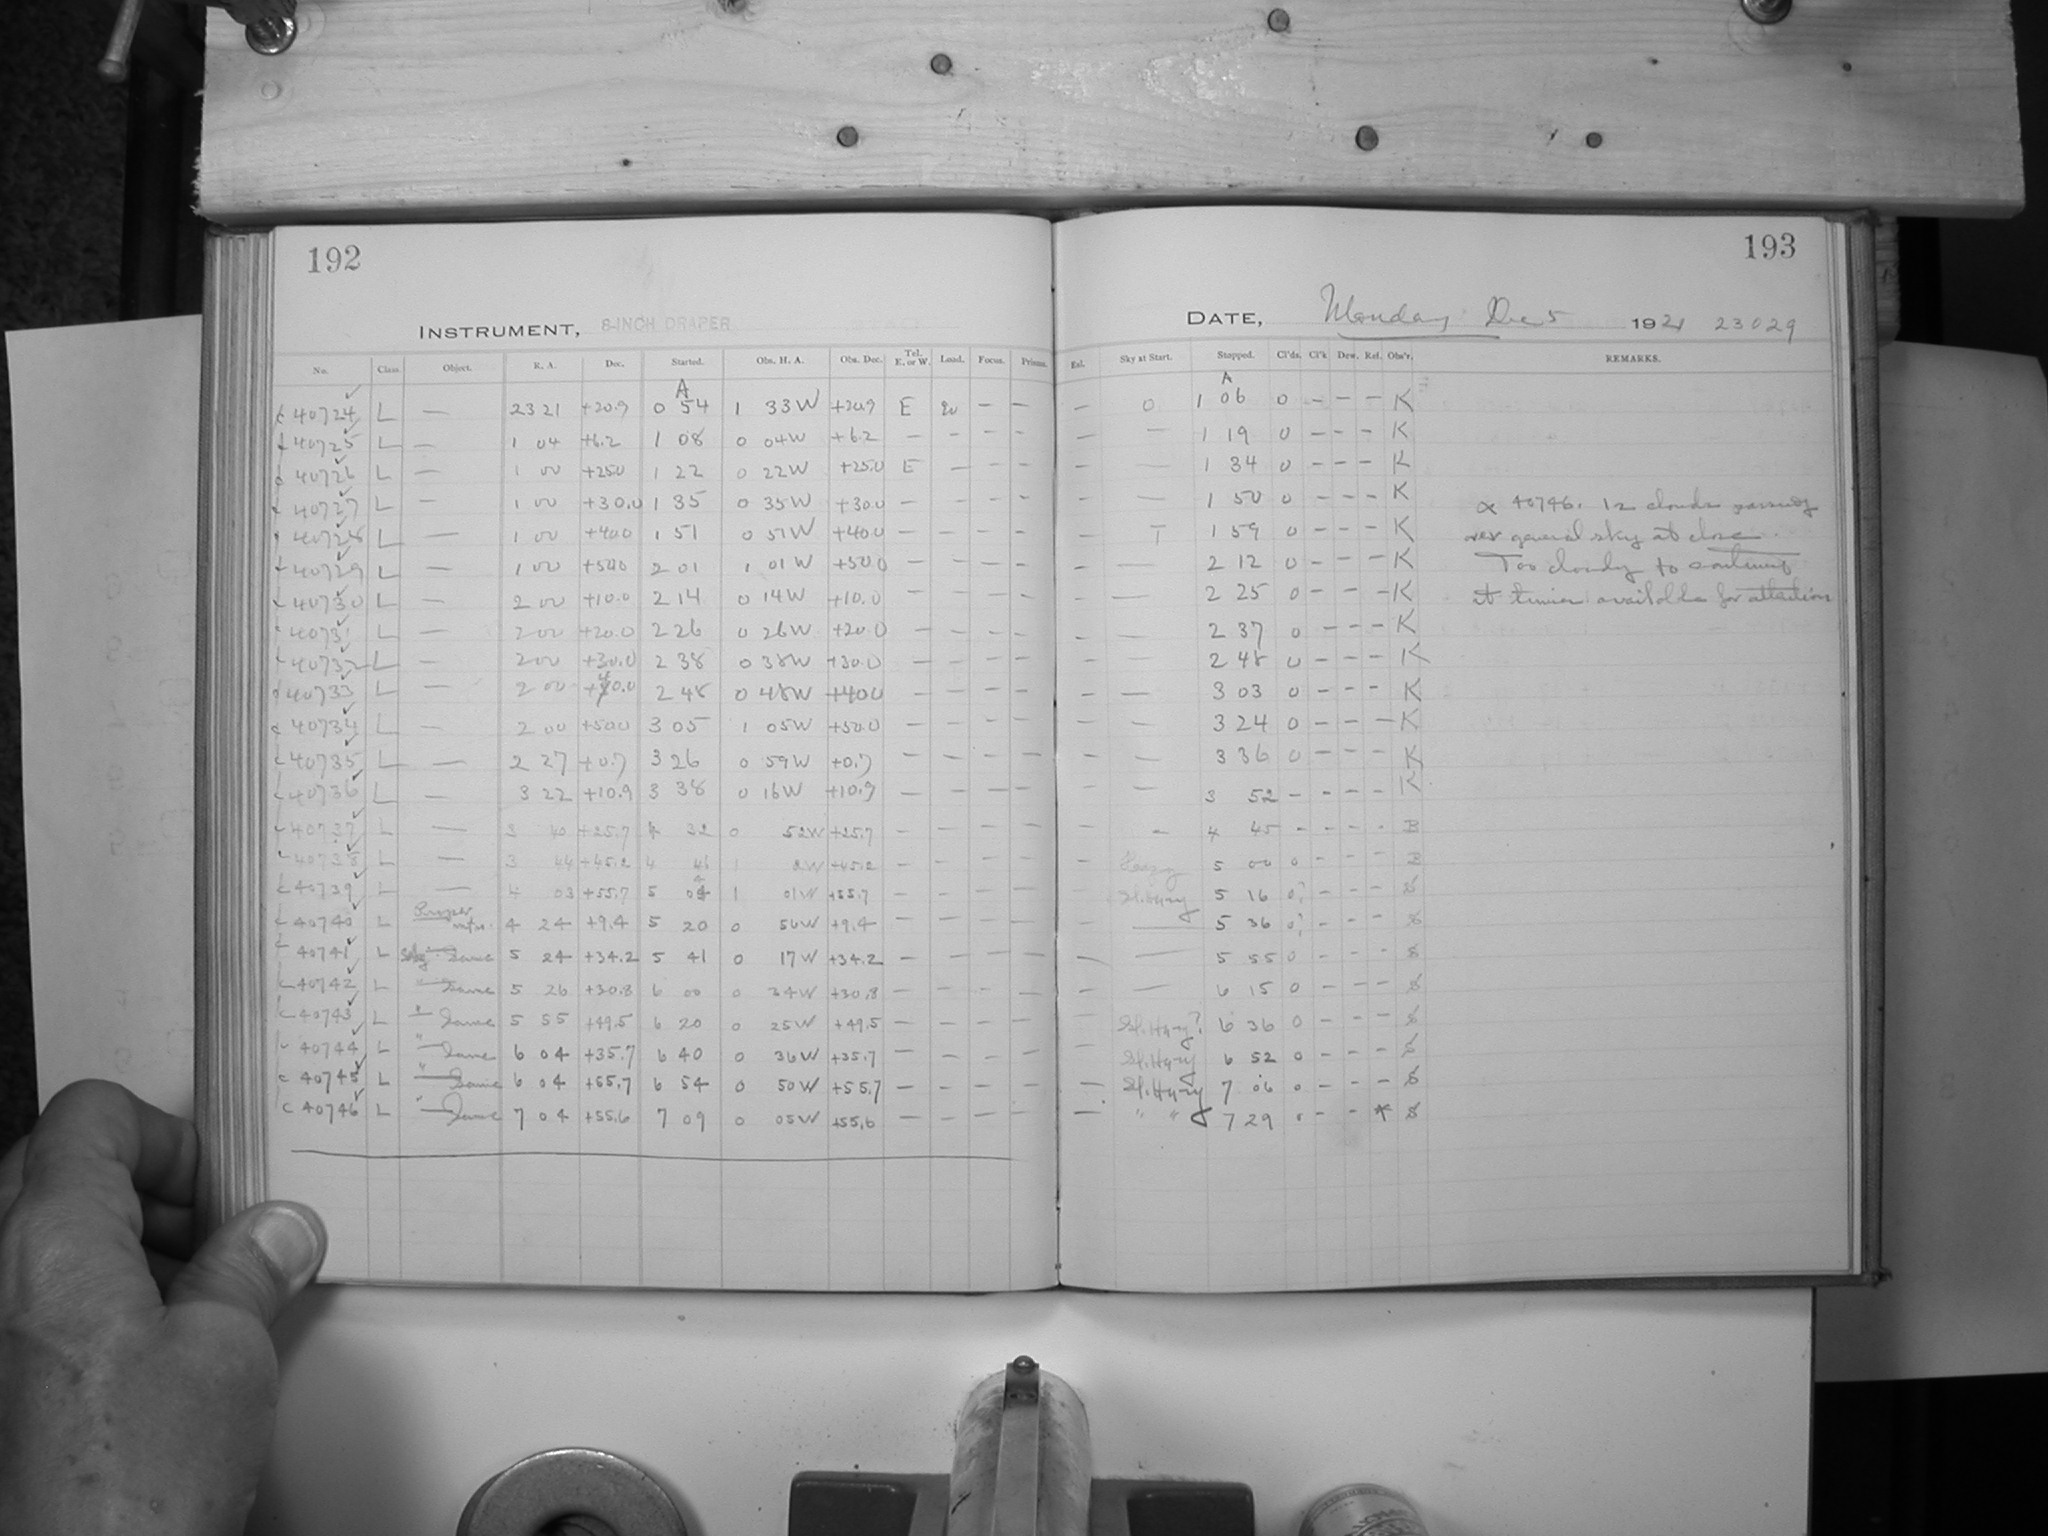 192
INSTRUMENT, 8-INCH DRAPER
No. Class. Object. R. A. Dec. Started. Obs. H. A. Obs. Dec. Tel. E. or W. Load. Focus. Prisms.
A
c 40724 L — 23 21 +20.9 0 54 1 33 W +20.9 E — —
c 40725 L — 1 04 +6.2 1 08 0 04 W +6.2 — — — —
c 40726 L — 1 00 +25.0 1 22 0 22 W +25.0 E — — —
c 40727 L — 1 00 +30.0 1 35 0 35 W +30.0 — — — —
c 40728 L — 1 00 +40.0 1 51 0 51 W +40.0 — — — —
c 40729 L — 1 00 +50.0 2 01 1 01 W +50.0 — — — —
c 40730 L — 2 00 +10.0 2 14 0 14 W +10.0 — — — —
c 40731 L — 2 00 +20.0 2 26 0 26 W +20.0 — — — —
c 40732 L — 2 00 +30.0 2 38 0 38 W +30.0 — — — —
c 40733 L — 2 00 +40.0 2 48 0 48 W +40.0 — — — —
c 40734 L — 2 00 +50.0 3 05 1 05 W +50.0 — — — —
c 40735 L — 2 27 +0.7 3 26 0 59 W +0.7 — — — —
c 40736 L — 3 22 +10.9 3 38 0 16 W +10.9 — — — —
c 40737 L — 3 40 +25.7 4 32 0 52 W +25.7 — — — —
c 40738 L — 3 44 +45.2 4 46 1 2 W +45.2 — — — —
c 40739 L — 4 03 +55.7 5 04 1 01 W +55.7 — — — —
c 40740 L Proper motn. 4 24 +9.4 5 20 0 56 W +9.4 — — — —
c 40741 L Same 5 24 +34.2 5 41 0 17 W +34.2 — — — —
c 40742 L " Same 5 26 +30.8 6 00 0 34 W +30.8 — — — —
c 40743 L " Same 5 55 +49.5 6 20 0 25 W +49.5 — — — —
c 40744 L " Same 6 04 +35.7 6 40 0 36 W +35.7 — — — —
c 40745 L " Same 6 04 +55.7 6 54 0 50 W +55.7 — — — —
c 40746 L " Same 7 04 +55.6 7 09 0 05 W +55.6 — — — —
193
DATE, Monday Dec 5 1921 23029
Exl. Sky at Start. Stopped. Cl'ds. Cl'k Dew. Ref. Obs'r. REMARKS.
A
— 0 1 06 0 — — — K
— — 1 19 0 — — — K
— — 1 34 0 — — — K
— — 1 50 0 — — — K
— T 1 59 0 — — — K
— — 2 12 0 — — — K
— — 2 25 0 — — — K
— — 2 37 0 — — — K
— — 2 48 0 — — — K
— — 3 03 0 — — — K
— — 3 24 0 — — — K
— — 3 36 0 — — — K
— — 3 52 — — — — K
— — 4 45 — — — — B
— Hazy 5 00 0 — — — B
— Sl. Hazy 5 16 0? — — — S
— — 5 36 0? — — — S
— — 5 55 0 — — — S
— — 6 15 0 — — — S
— Sl. Hazy? 6 36 0 — — — S
— Sl. Hazy 6 52 0 — — — S
— Sl. Hazy 7 06 0 — — — S
— " " 7 29 — — * S
40746. clouds passing
over general sky at close.
Too cloudy to continue
at times available for attention